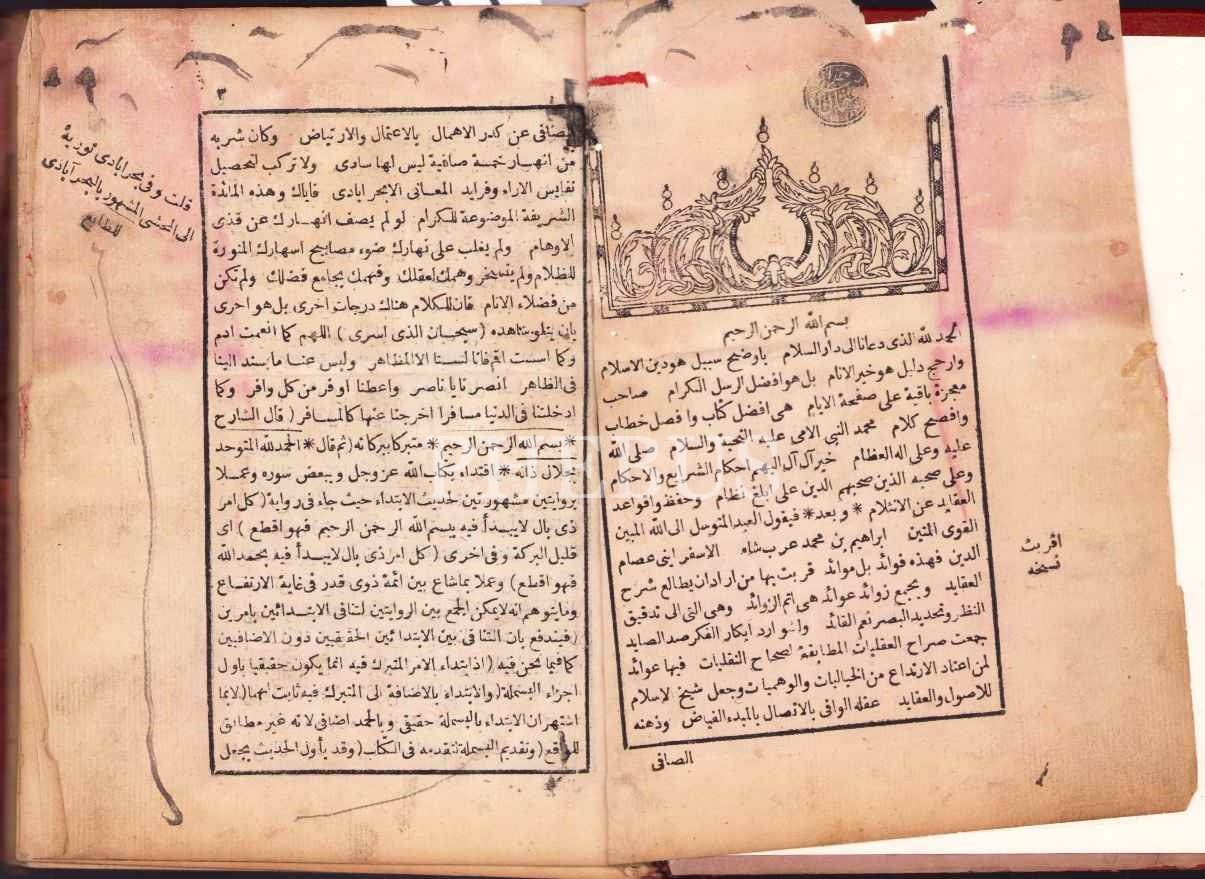 بسم الله الرحمن الرحيم
الحمد لله الذى دعانا الى دار السلام باوضح سبيل هو دين الاسلام
وارجح دليل هو خير الانام بل هو افضل الرسل الكرام صاحب
معجزة باقية على صفحة الايام هى افضل كتاب وافصل خطاب
وافصح كلام محمد النبى الامى عليه التحية والسلام صلى الله
عليه وعلى اله العظام خير آل آل اليهم احكام الشرايع والاحكام
وعلى صحبه الذين صحبهم الدين على ابلغ نظام وحفظوا قواعد
العقايد عن الانثلام * وبعد * فيقول العبد المتوسل الى الله المبين
القوى المتين ابراهيم بن محمد عرب شاه الاسفراينى عصام
الدين فهذه فوائد بل موائد قربت بها من اراد ان يطالع شرح
العقايد ويجمع زوائد عوائد هى اتم الزوائد وهى التى الى تدقيق
النظر وتحديد البصر نعم القائد ولشوارد ابكار الفكر صد الصايد
جمعت صراح العقليات المطابقة لصحاح النقليات فيها عوائد
لمن اعتاد الارتداع من الخيالات والوهميات وجعل شيخ الاسلام
للاصول والعقايد عقله الوافى بالاتصال بالمبدء الفياض وذهنه
الصافى
اقربت
نسخه
٣
يصافى عن كدر الاهمال بالاعتمال والارتياض وكان شربه
من انهار خمسة صافية ليس لها سادى ولا تركب لتحصيل
نفايس الاراء وفرايد المعانى الابحر ابادى فاياك وهذه المائدة
الشريفة الموضوعة للكرام لو لم يصف انهارك عن قذى
الاوهام ولم يغلب على نهارك ضوء مصابيح اسهارك المنورة
للظلام ولم وهمك لعقلك وفهمك بجامع فضلك ولم تكن
من فضلاء الانام فان للكلام هناك درجات اخرى بل هو احرى
بان يتلو مشاهده (سبحان الذى اسرى) اللهم كما انعمت ادم
وكما اسست اقم فانا لسنا الا المظاهر وليس عنا ما يسند الينا
فى الظاهر انصرنا يا ناصر واعطنا اوفر من كل وافر وكما
ادخلتنا فى الدنيا مسافرا اخرجنا عنها كالمسافر (قال الشارح
* بسم الله الرحمن الرحيم * متبركا ببركاته (ثم قال * الحمد لله المتوحد
بجلال ذاته * اقتداء بكتاب الله عز وجل وببعض سوره وعملا
بروايتين مشهورتين لحديث الابتداء حيث جاء فى رواية (كل امر
ذى بال لا يبدأ فيه ببسم الله الرحمن الرحيم فهو اقطع) اى
قليل البركة وفى اخرى (كل امر ذى بال لا يبدأ فيه بحمد الله
فهو اقطع) وعملا بما شاع بين ائمة ذوى قدر فى غاية الارتفاع
وما يتوهم انه لا يمكن الجمع بين الروايتين لتنافى الابتدائين بامرين
(فيندفع بان التنافى بين الابتدائين الحقيقيين دون الاضافيين
كما فيما نحن فيه (اذ ابتداء الامر المتبرك فيه انما يكون حقيقيا باول
اجزاء البسملة (والابتداء بالاضافة الى المتبرك فيه ثابت لهما (لا بما
اشتهر ان الابتداء بالبسملة حقيقى وبالحمد اضافى لانه غير مطابق
للواقع (وتقديم البسملة لتقدمه فى الكتاب (وقد يأول الحديث بجعل
قلت وفى بحر ابادى تورية
الى المحشى المشهور بالبحر آبادى
للطابع
THEBUS